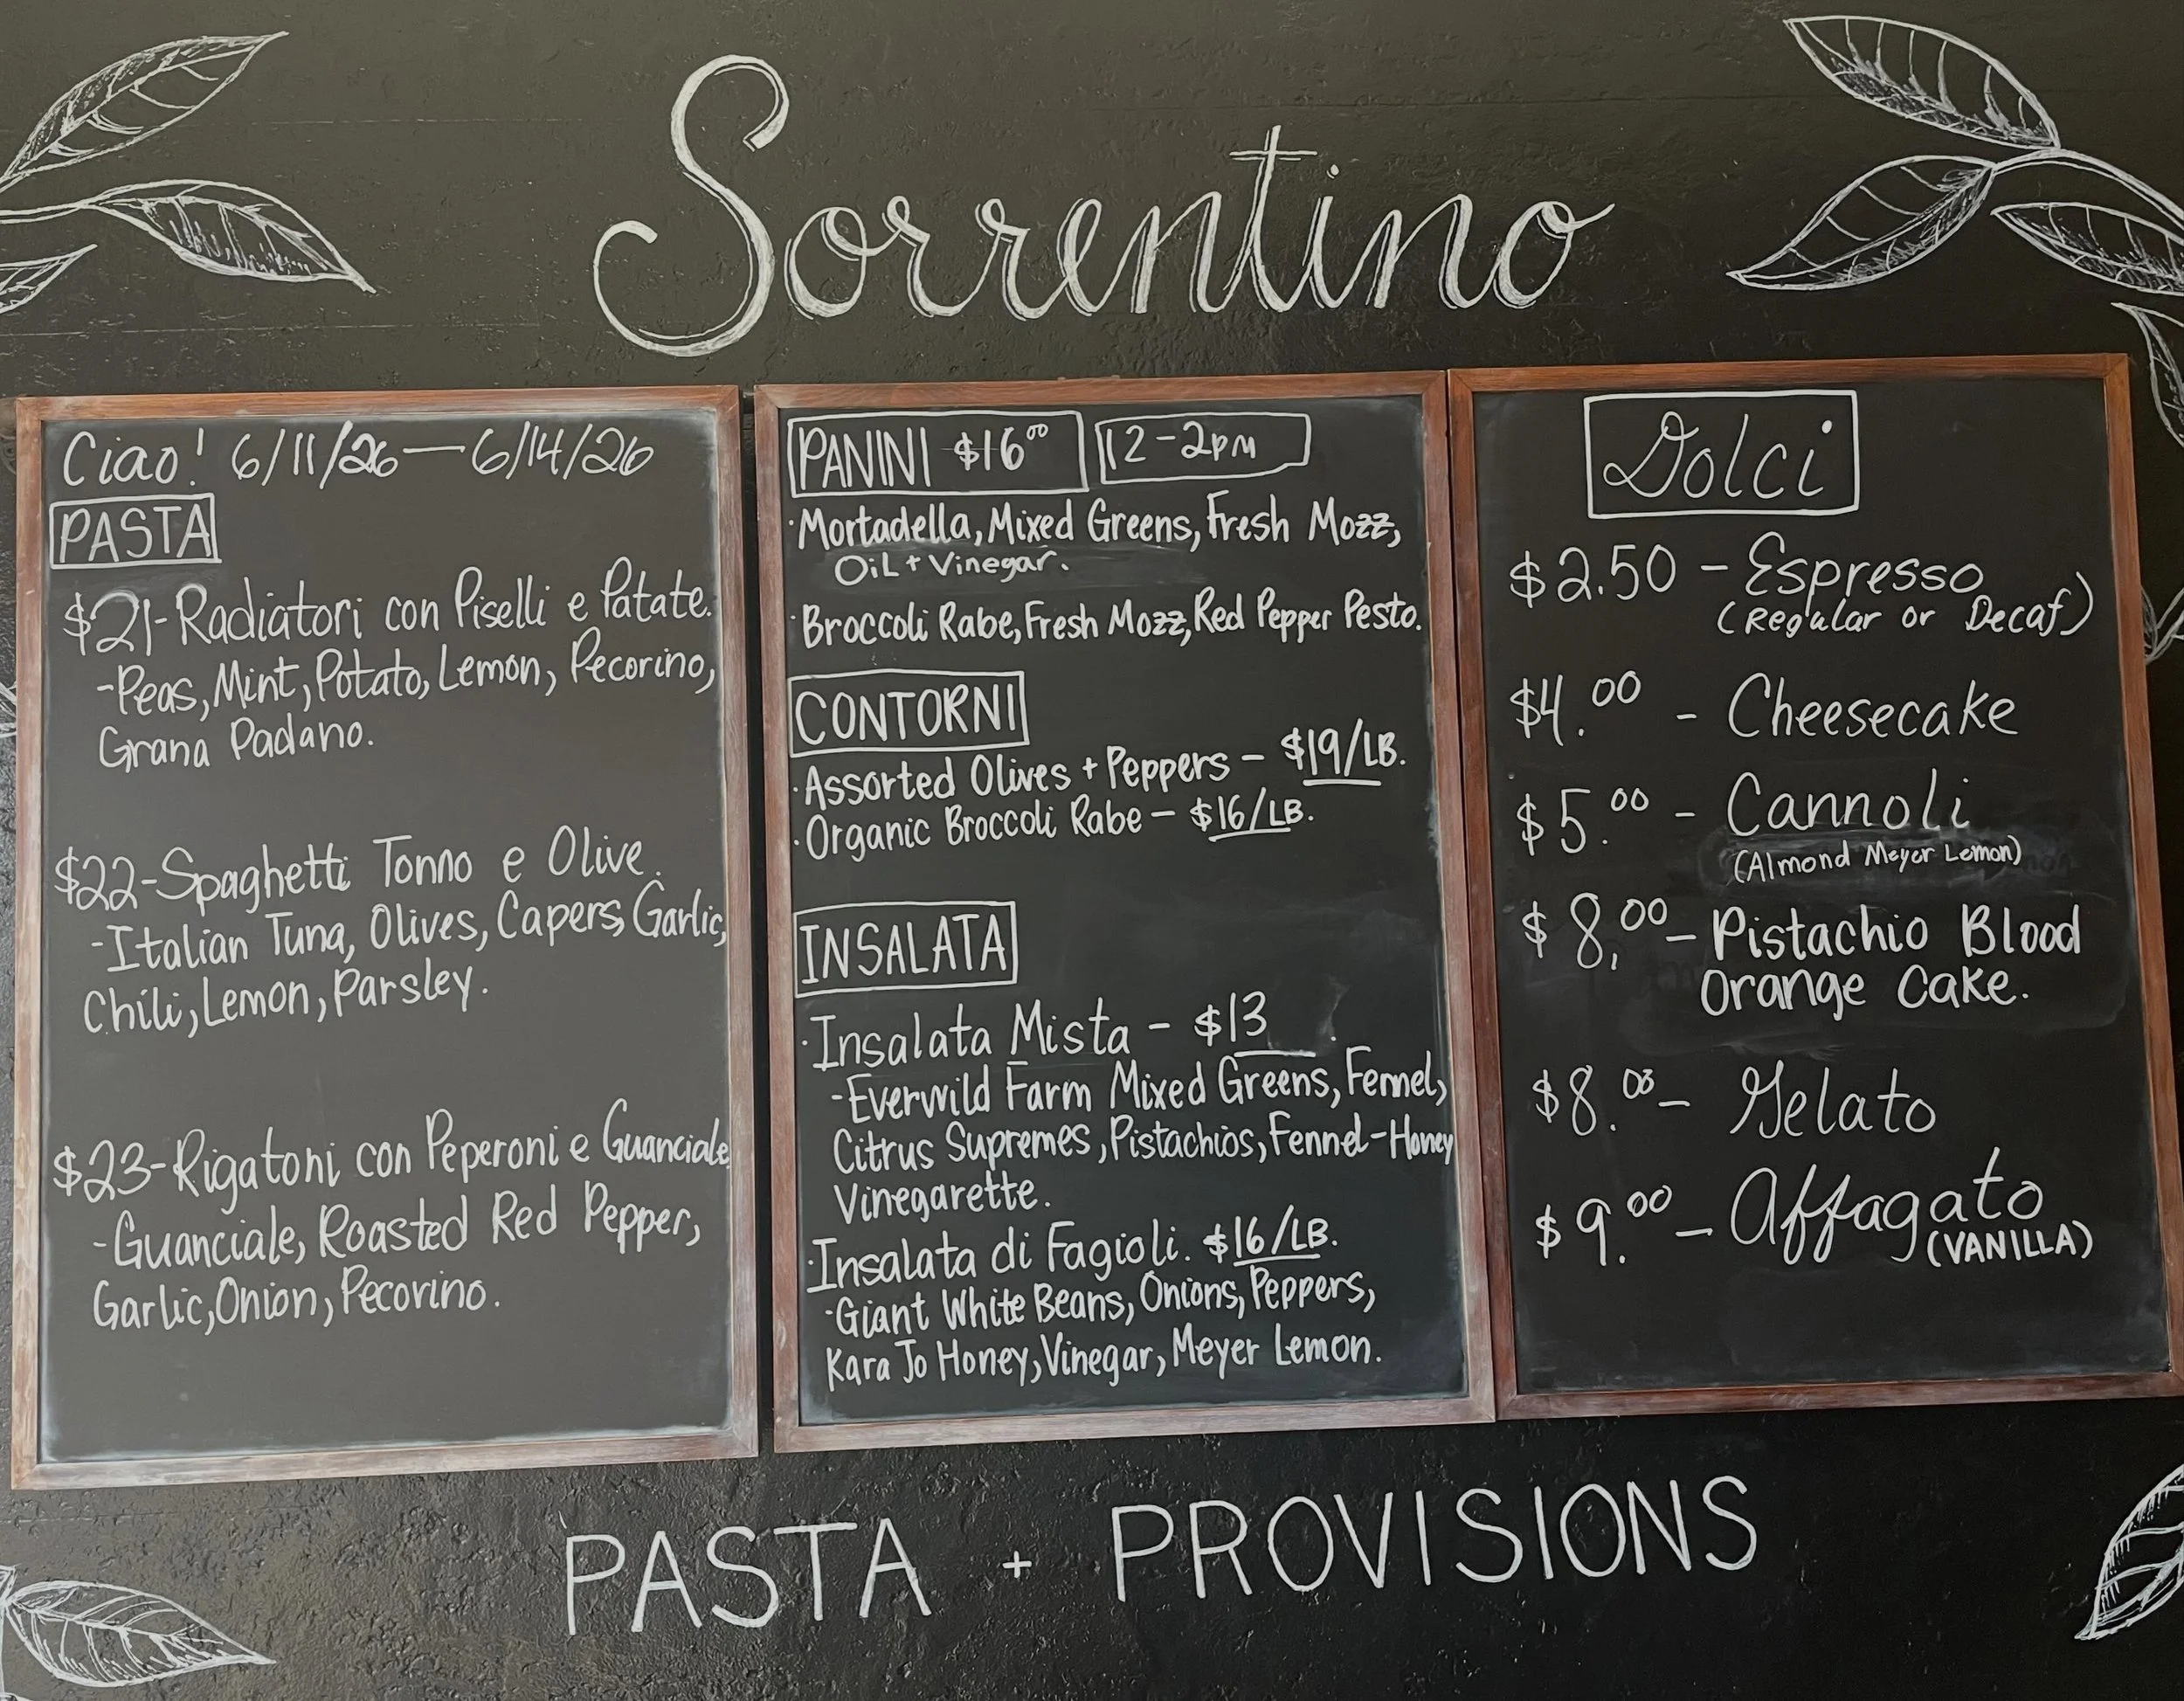 Sorrentino
Ciao! 6/11/26 — 6/14/26
PASTA
$21-Radiatori con Piselli e Patate.
-Peas, Mint, Potato, Lemon, Pecorino,
Grana Padano.
$22-Spaghetti Tonno e Olive.
-Italian Tuna, Olives, Capers, Garlic,
Chili, Lemon, Parsley.
$23-Rigatoni con Peperoni e Guanciale
-Guanciale, Roasted Red Pepper,
Garlic, Onion, Pecorino.
PANINI $16⁰⁰ 12-2pm
·Mortadella, Mixed Greens, Fresh Mozz,
Oil + Vinegar.
·Broccoli Rabe, Fresh Mozz, Red Pepper Pesto.
CONTORNI
·Assorted Olives + Peppers - $19/LB.
·Organic Broccoli Rabe - $16/LB.
INSALATA
·Insalata Mista - $13.
-Everwild Farm Mixed Greens, Fennel,
Citrus Supremes, Pistachios, Fennel-Honey
Vinegarette.
·Insalata di Fagioli. $16/LB.
-Giant White Beans, Onions, Peppers,
Kara Jo Honey, Vinegar, Meyer Lemon.
Dolci
$2.50 - Espresso
(Regular or Decaf)
$4.00 - Cheesecake
$5.00 - Cannoli
(Almond Meyer Lemon)
$8.00 - Pistachio Blood
Orange Cake.
$8.00 - Gelato
$9.00 - Affagato
(VANILLA)
PASTA + PROVISIONS